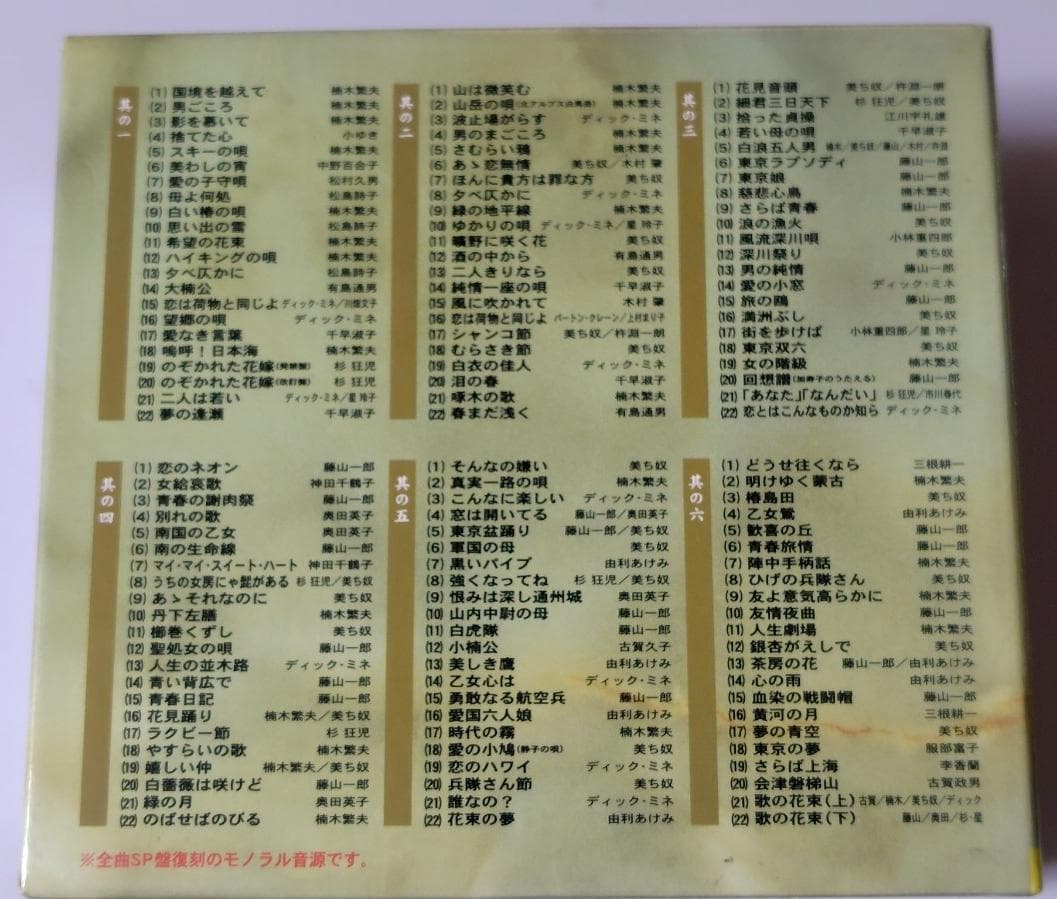 其の一
(1) 国境を越えて 楠木繁夫
(2) 男ごころ 楠木繁夫
(3) 影を慕いて 楠木繁夫
(4) 捨てた心 小ゆき
(5) スキーの唄 楠木繁夫
(6) 美わしの宵 中野百合子
(7) 愛の子守唄 松村久男
(8) 母よ何処 松島詩子
(9) 白い椿の唄 楠木繁夫
(10) 思い出の雪 松島詩子
(11) 希望の花束 楠木繁夫
(12) ハイキングの唄 楠木繁夫
(13) 夕べ仄かに 松島詩子
(14) 大楠公 有島通男
(15) 恋は荷物と同じよ ディック・ミネ/川畑文子
(16) 望郷の唄 ディック・ミネ
(17) 愛なき言葉 千早淑子
(18) 嗚呼!日本海 楠木繁夫
(19) のぞかれた花嫁(発禁盤) 杉 狂児
(20) のぞかれた花嫁(改訂盤) 杉 狂児
(21) 二人は若い ディック・ミネ/星 玲子
(22) 夢の逢瀬 千早淑子
其の二
(1) 山は微笑む 楠木繁夫
(2) 山岳の唄(北アルプス白馬岳) 楠木繁夫
(3) 波止場がらす ディック・ミネ
(4) 男のまごころ 楠木繁夫
(5) さむらい鴉 楠木繁夫
(6) あゝ恋無情 美ち奴/木村 肇
(7) ほんに貴方は罪な方 美ち奴
(8) 夕べ仄かに ディック・ミネ
(9) 緑の地平線 楠木繁夫
(10) ゆかりの唄 ディック・ミネ/星 玲子
(11) 曠野に咲く花 美ち奴
(12) 酒の中から 有島通男
(13) 二人きりなら 美ち奴
(14) 純情一座の唄 千早淑子
(15) 風に吹かれて 木村 肇
(16) 恋は荷物と同じよ バートン・クレーン/上村まり子
(17) シャンコ節 美ち奴/杵淵一朗
(18) むらさき節 美ち奴
(19) 白衣の佳人 ディック・ミネ
(20) 泪の春 千早淑子
(21) 啄木の歌 楠木繁夫
(22) 春まだ浅く 有島通男
其の三
(1) 花見音頭 美ち奴/杵淵一朗
(2) 細君三日天下 杉 狂児/美ち奴
(3) 拾った貞操 江川宇礼雄
(4) 若い母の唄 千早淑子
(5) 白浪五人男 楠木/美ち奴/藤山/木村/杵淵
(6) 東京ラプソディ 藤山一郎
(7) 東京娘 藤山一郎
(8) 慈悲心鳥 楠木繁夫
(9) さらば青春 藤山一郎
(10) 浪の漁火 美ち奴
(11) 風流深川唄 小林重四郎
(12) 深川祭り 美ち奴
(13) 男の純情 藤山一郎
(14) 愛の小窓 ディック・ミネ
(15) 旅の鴎 藤山一郎
(16) 満洲ぶし 美ち奴
(17) 街を歩けば 小林重四郎/星 玲子
(18) 東京双六 美ち奴
(19) 女の階級 楠木繁夫
(20) 回想譜(加寿子のうたえる) 藤山一郎
(21) 「あなた」「なんだい」 杉 狂児/市川春代
(22) 恋とはこんなものか知ら ディック・ミネ
其の四
(1) 恋のネオン 藤山一郎
(2) 女給哀歌 神田千鶴子
(3) 青春の謝肉祭 藤山一郎
(4) 別れの歌 奥田英子
(5) 南国の乙女 奥田英子
(6) 南の生命線 藤山一郎
(7) マイ・マイ・スイート・ハート 神田千鶴子
(8) うちの女房にゃ髭がある 杉 狂児/美ち奴
(9) あゝそれなのに 美ち奴
(10) 丹下左膳 楠木繁夫
(11) 櫛巻くずし 美ち奴
(12) 聖処女の唄 藤山一郎
(13) 人生の並木路 ディック・ミネ
(14) 青い背広で 藤山一郎
(15) 青春日記 藤山一郎
(16) 花見踊り 楠木繁夫/美ち奴
(17) ラクビー節 杉 狂児
(18) やすらいの歌 楠木繁夫
(19) 嬉しい仲 楠木繁夫/美ち奴
(20) 白薔薇は咲けど 藤山一郎
(21) 緑の月 奥田英子
(22) のばせばのびる 楠木繁夫
其の五
(1) そんなの嫌い 美ち奴
(2) 真実一路の唄 楠木繁夫
(3) こんなに楽しい ディック・ミネ
(4) 窓は開いてる 藤山一郎/奥田英子
(5) 東京盆踊り 藤山一郎/美ち奴
(6) 軍国の母 美ち奴
(7) 黒いパイプ 由利あけみ
(8) 強くなってね 杉 狂児/美ち奴
(9) 恨みは深し通州城 奥田英子
(10) 山内中尉の母 藤山一郎
(11) 白虎隊 藤山一郎
(12) 小楠公 古賀久子
(13) 美しき鷹 由利あけみ
(14) 乙女心は ディック・ミネ
(15) 勇敢なる航空兵 藤山一郎
(16) 愛国六人娘 由利あけみ
(17) 時代の霧 楠木繁夫
(18) 愛の小鳩(静子の唄) 美ち奴
(19) 恋のハワイ ディック・ミネ
(20) 兵隊さん節 美ち奴
(21) 誰なの? ディック・ミネ
(22) 花束の夢 由利あけみ
其の六
(1) どうせ往くなら 三根耕一
(2) 明けゆく蒙古 楠木繁夫
(3) 椿島田 美ち奴
(4) 乙女鷲 由利あけみ
(5) 歓喜の丘 藤山一郎
(6) 青春旅情 藤山一郎
(7) 陣中手柄話 楠木繁夫
(8) ひげの兵隊さん 美ち奴
(9) 友よ意気高らかに 楠木繁夫
(10) 友情夜曲 藤山一郎
(11) 人生劇場 楠木繁夫
(12) 銀杏がえしで 美ち奴
(13) 茶房の花 藤山一郎/由利あけみ
(14) 心の雨 由利あけみ
(15) 血染の戦闘帽 藤山一郎
(16) 黄河の月 三根耕一
(17) 夢の青空 美ち奴
(18) 東京の夢 服部富子
(19) さらば上海 李香蘭
(20) 会津磐梯山 古賀政男
(21) 歌の花束(上) 古賀/楠木/美ち奴/ディック
(22) 歌の花束(下) 藤山/奥田/杉・星
※全曲SP盤復刻のモノラル音源です。